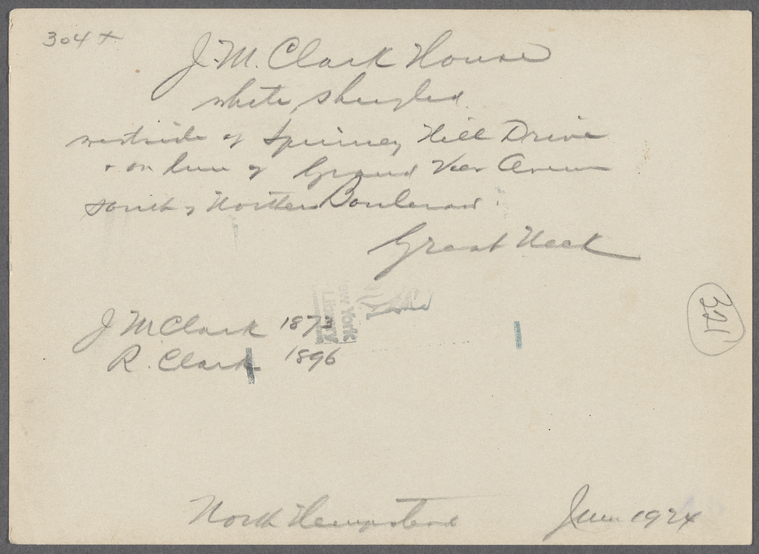 304+
J. M. Clark House
white, shingled.
westside of Spinney Hill Drive
+ on line of Grand View Avenue
south of Northern Boulevard.
Great Neck
J M. Clark 187
R. Clark 1896
New York
Library
321
North Hempstead June 1924